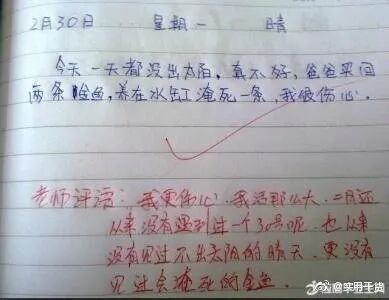 2月30日 星期一 晴
今天一天都没出太阳,真不好,爸爸买回
两条金鱼,养在水缸工淹死一条,我很伤心.
老师评语:我更伤心.我活那么大.二月还
从来没有遇到过一个30号呢.也从来
没有见过不出太阳的晴天.更没有
见过会淹死的金鱼.
@实用干货